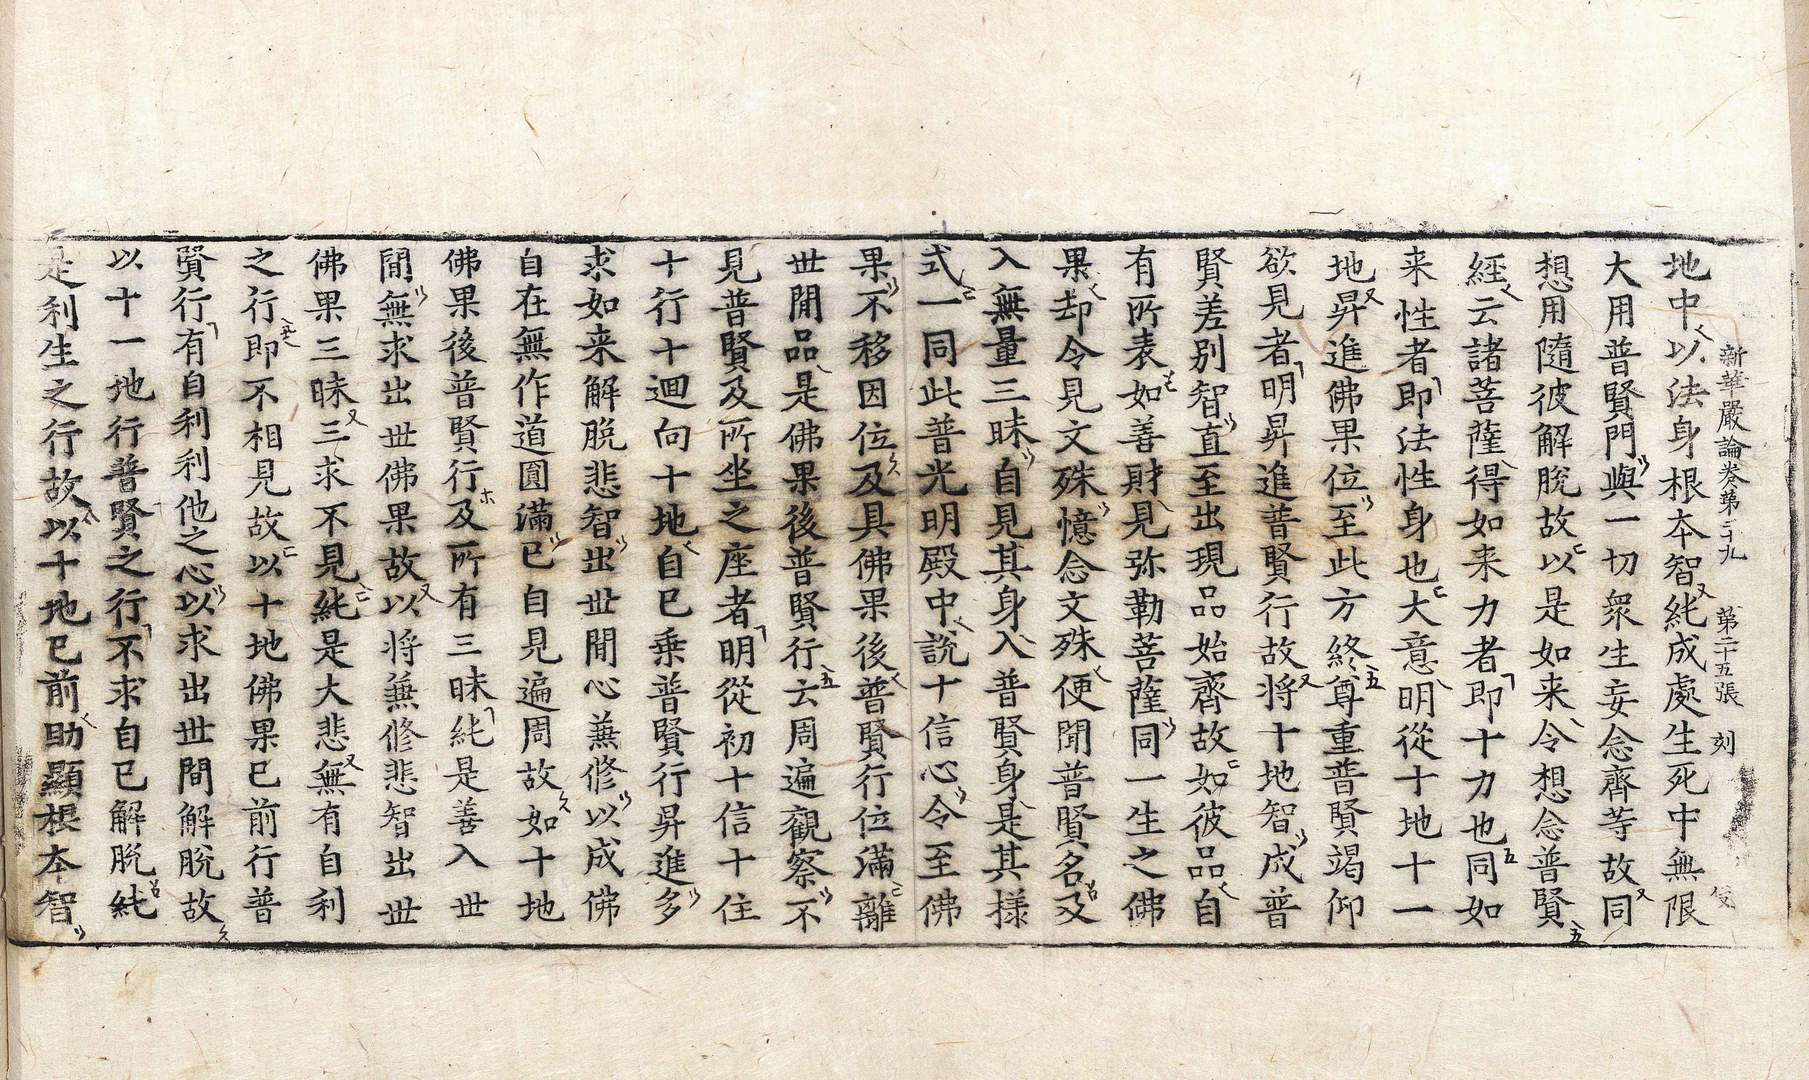 新華嚴論卷第三十九 第二十五張 刻
地中以法身根本智純成處生死中無限
大用普賢門與一切衆生妄念齊等故同
想用隨彼解脫故以是如来令想念普賢
經云諸菩薩得如来力者即十力也同如
来性者即法性身也大意明從十地十一
地昇進佛果位至此方終尊重普賢竭仰
欲見者明昇進普賢行故將十地智成普
賢差別智直至出現品始齊故如彼品自
有所表如善財見弥勒菩薩同一生之佛
果却令見文殊憶念文殊便聞普賢名及
入無量三昧自見其身入普賢身是其樣
式一同此普光明殿中說十信心令至佛
果不移因位及具佛果後普賢行位滿離
世閒品是佛果後普賢行云周遍觀察不
見普賢及所坐之座者明從初十信十住
十行十迴向十地自已乗普賢行昇進多
求如来解脫悲智出世閒心兼修以成佛
自在無作道圓滿已自見遍周故如十地
佛果後普賢行及所有三昧純是善入世
閒無求出世佛果故以將兼修悲智出世
佛果三昧三求不見純是大悲無有自利
之行即不相見故以十地佛果已前行普
賢行有自利利他之心以求出世間解脫故
以十一地行普賢之行不求自已解脫純
是利生之行故以十地已前助顯根本智